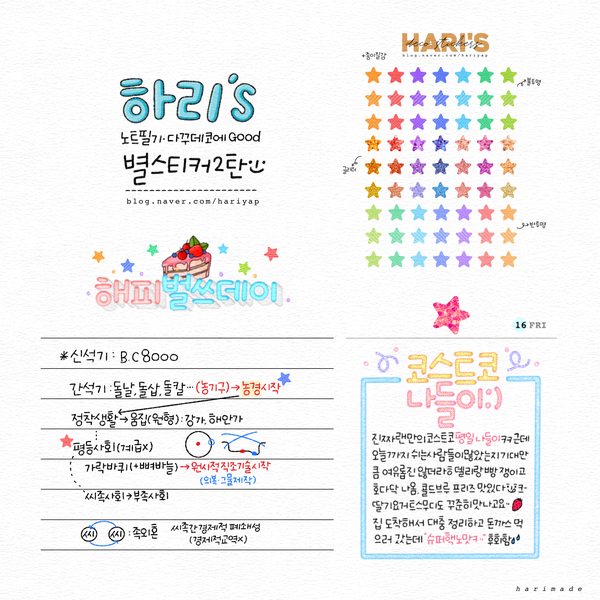 하리's
노트필기·다꾸데코에 Good
별스티커2탄
blog.naver.com/hariyap
HARI'S
deco stickers
blog.naver.com/hariyap
+종이질감
+불투명
글리터
+반투명
해피별쓰데이
*신석기 : B.C 8000
간석기 : 돌날, 돌삽, 돌칼… (농기구) → 농경시작
정착생활 → 움집(원형) : 강가, 해안가
평등사회(계급x)
가락바퀴(+뼈바늘) → 원시적 직조기술시작
(의복·그물제작)
씨족사회→부족사회
씨 씨 : 족외혼
씨족간 경제적 폐쇄성
(경제적교역x)
16 FRI
코스트코
나들이:)
진짜 오랜만의 코스트코 평일 나들이ㅋㅋ 근데
오늘 가자
쉬는사람들이 많았는지 기대만
큼 여유롭진 않더라 흐
델리랑 빵 쟁이고
호다닥 나옴. 콜드브루 프리즈 맛있다ㅋ-
딸기요거트스무디도 꾸준히 맛나고요~
집 도착해서 대충 정리하고 돈까스 먹
으러 갔는데 "슈퍼핵노맛ㅋ…" 후회함
harimade